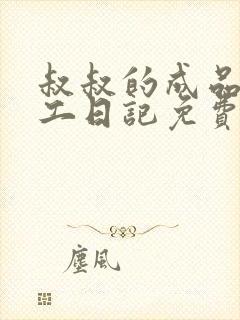 叔叔的成品
工日記免費
塵風